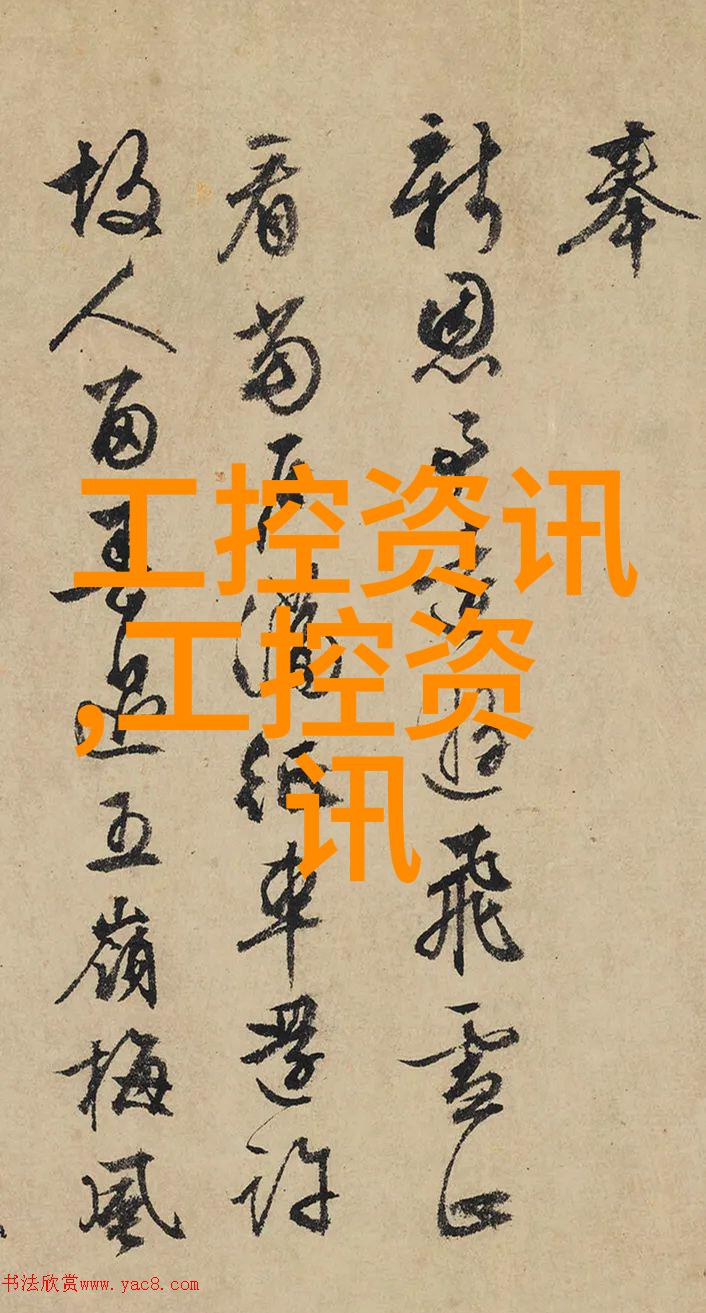 奉
新恩遊飛雪正
看紙車還許
故人過五嶺梅風
工控资讯
,工控资
讯
书法欣赏www.yac8.com